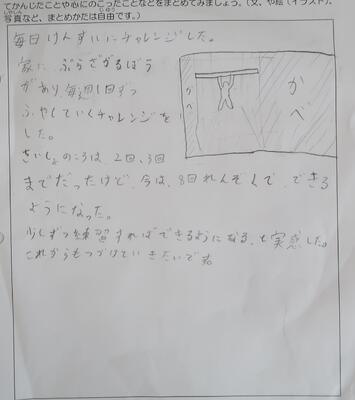 てかんじたことや心にのこったことなどをまとめてみましょう。(文、や絵(イラスト)、
写真など、まとめかたは自由です。)
毎日けんすいにチャレンジした。
家に、ぶらざがるぼう
があり、毎週1回ずつ
ふやしていくチャレンジを
した。
さいしょのころは、2回、3回
までだったけど、今は、8回れんぞくで、できる
ようになった。
少しずつ練習すればできるようになる、と実感した。
これからもつづけていきたいです。
かべ
かべ